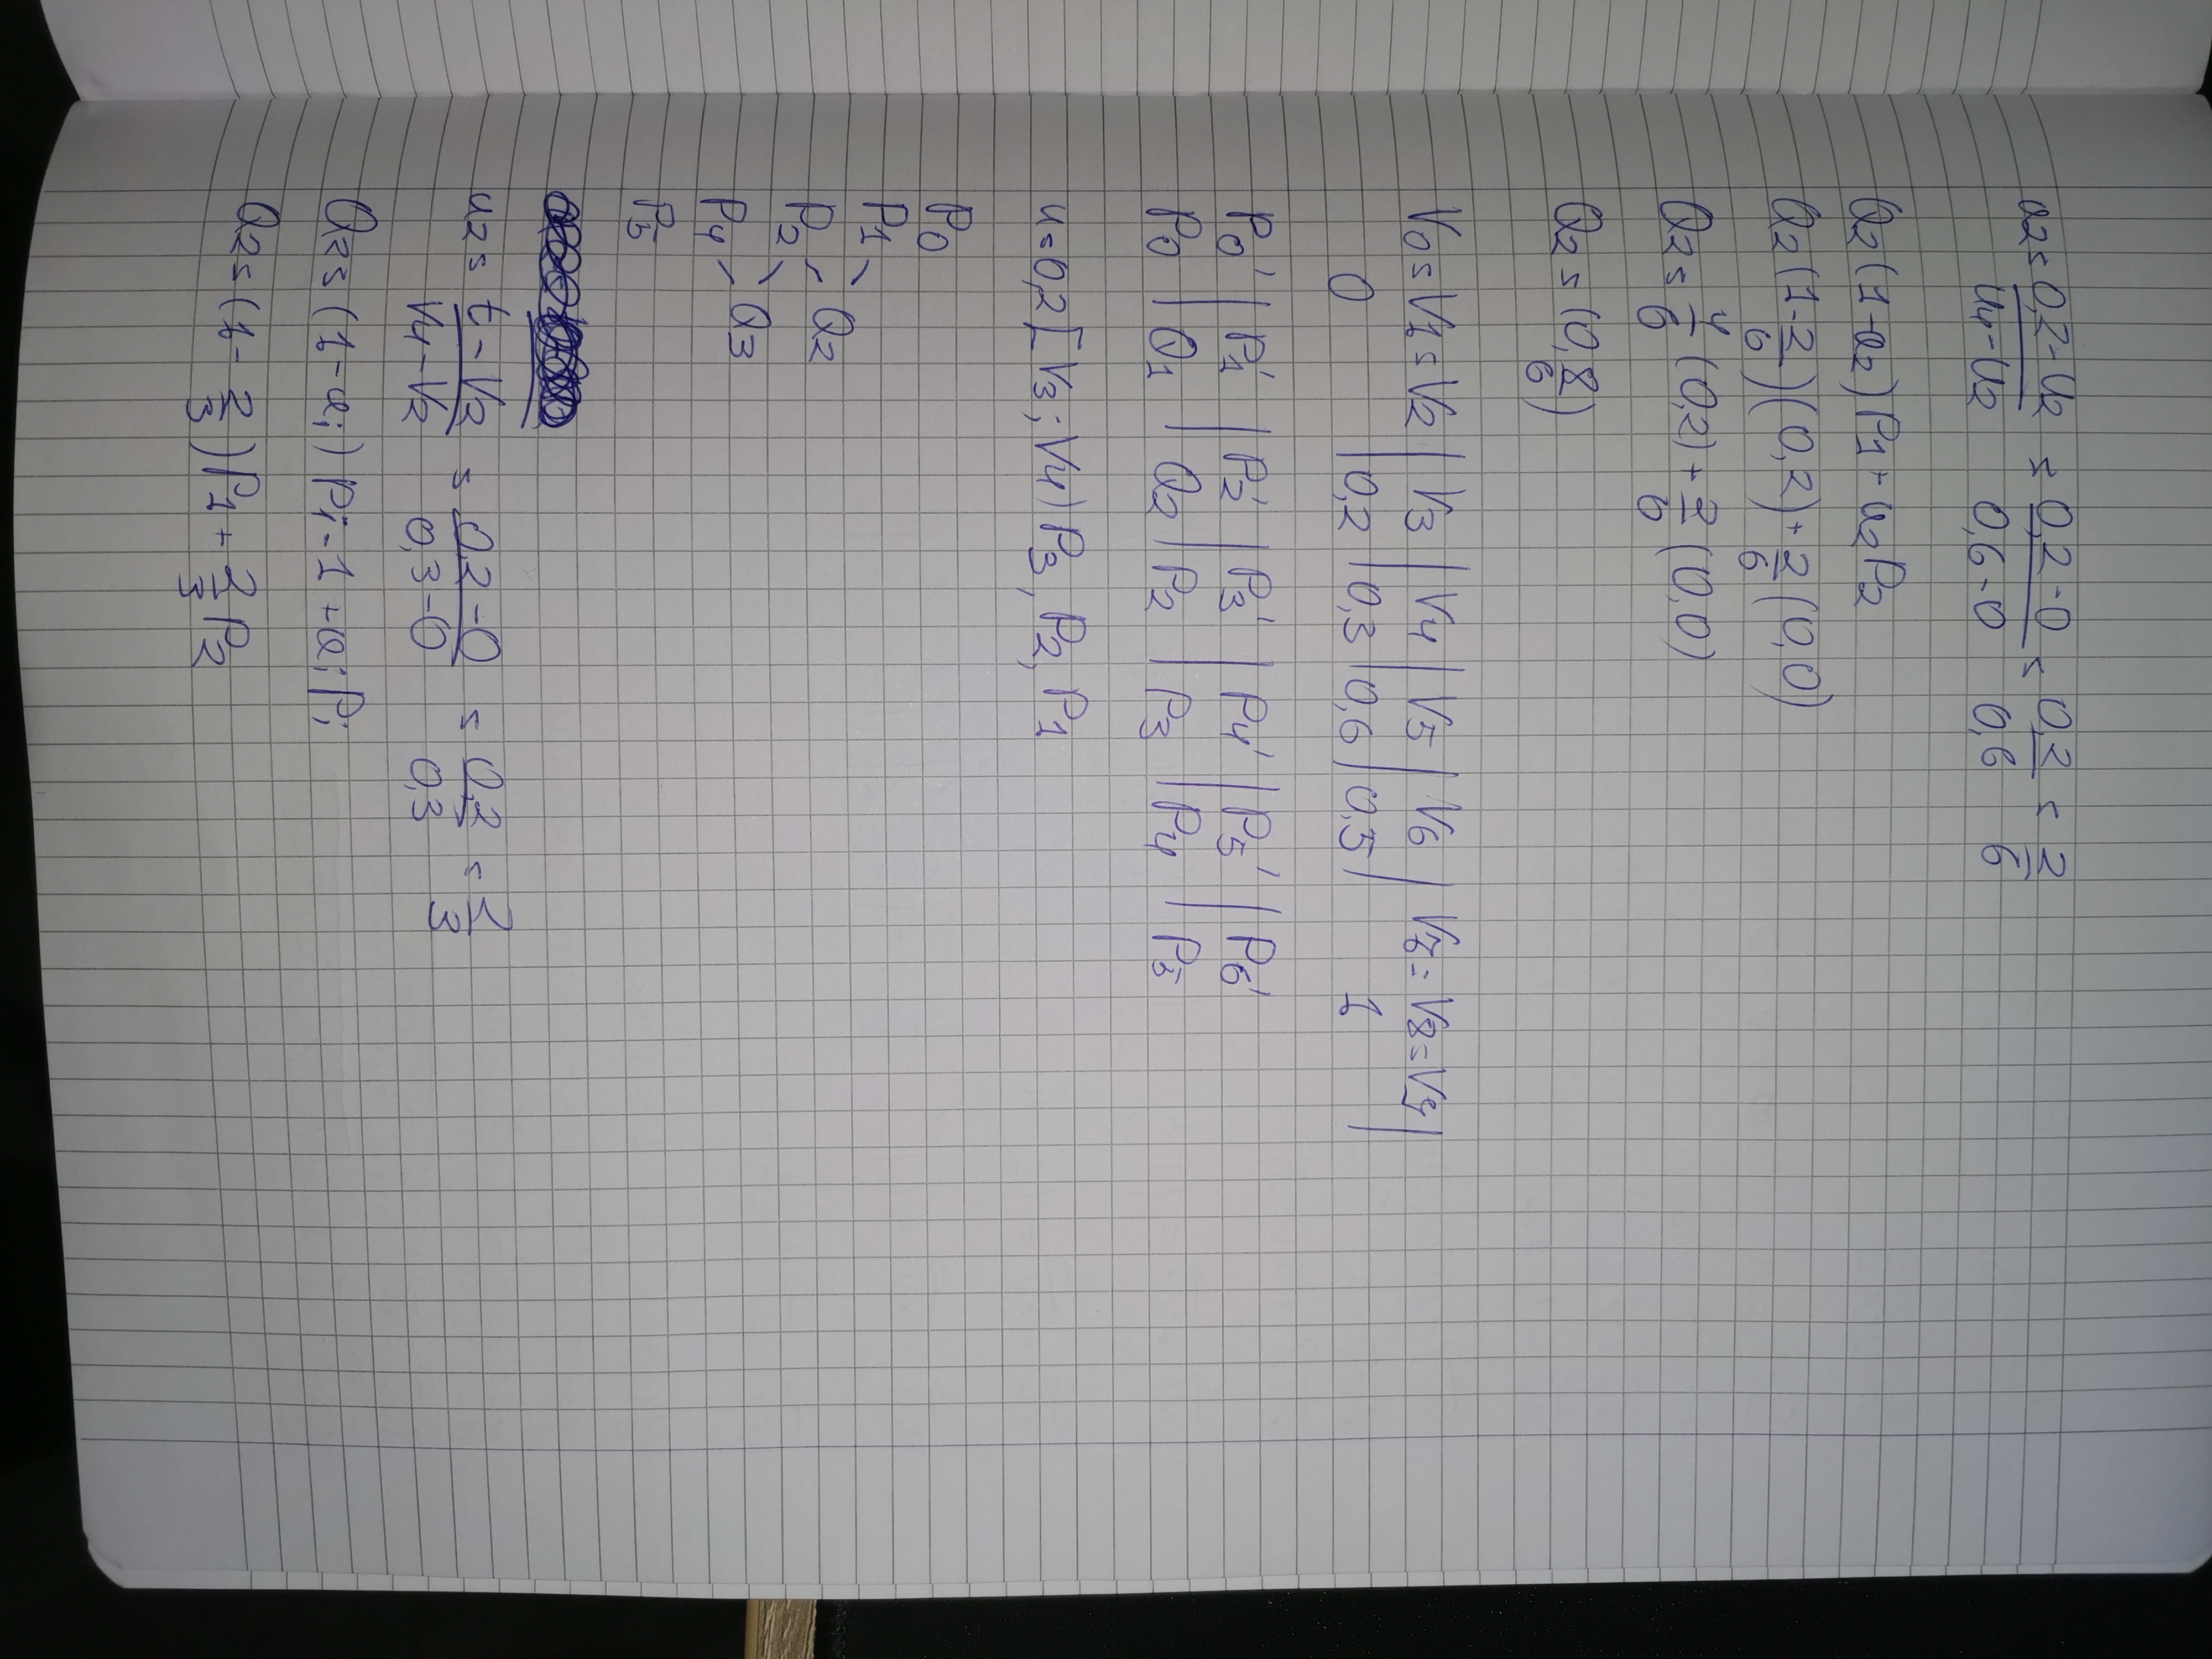 a2 = (0,2-U2)/(U4-U2) = (0,2-0)/(0,6-0) = 0,2/0,6 = 2/6
Q2(1-a2)P1 + a2P2
Q2(1-2/6)(0,2) + 2/6(0,0)
Q2 = 4/6(0,2) + 2/6(0,0)
Q2 = (0, 8/6)
V0 = V1 = V2 | V3 | V4 | V5 | V6 | V7 = V8 = V9 |
0 | 0,2 | 0,3 | 0,6 | 0,5 | 1
P0' | P1' | P2' | P3' | P4' | P5' | P6'
P0 | Q1 | Q2 | P2 | P3 | P4 | P5
u = 0,2 [V3; V4) P3, P2, P1
P0
P1
Q2
P2
Q3
P4
P5
a2 = (t-V2)/(V4-V2) = (0,2-0)/(0,3-0) = 0,2/0,3 = 2/3
Q2 = (1-ai) Pi-1 + aiPi
Q2 = (1-2/3)P1 + 2/3 P2